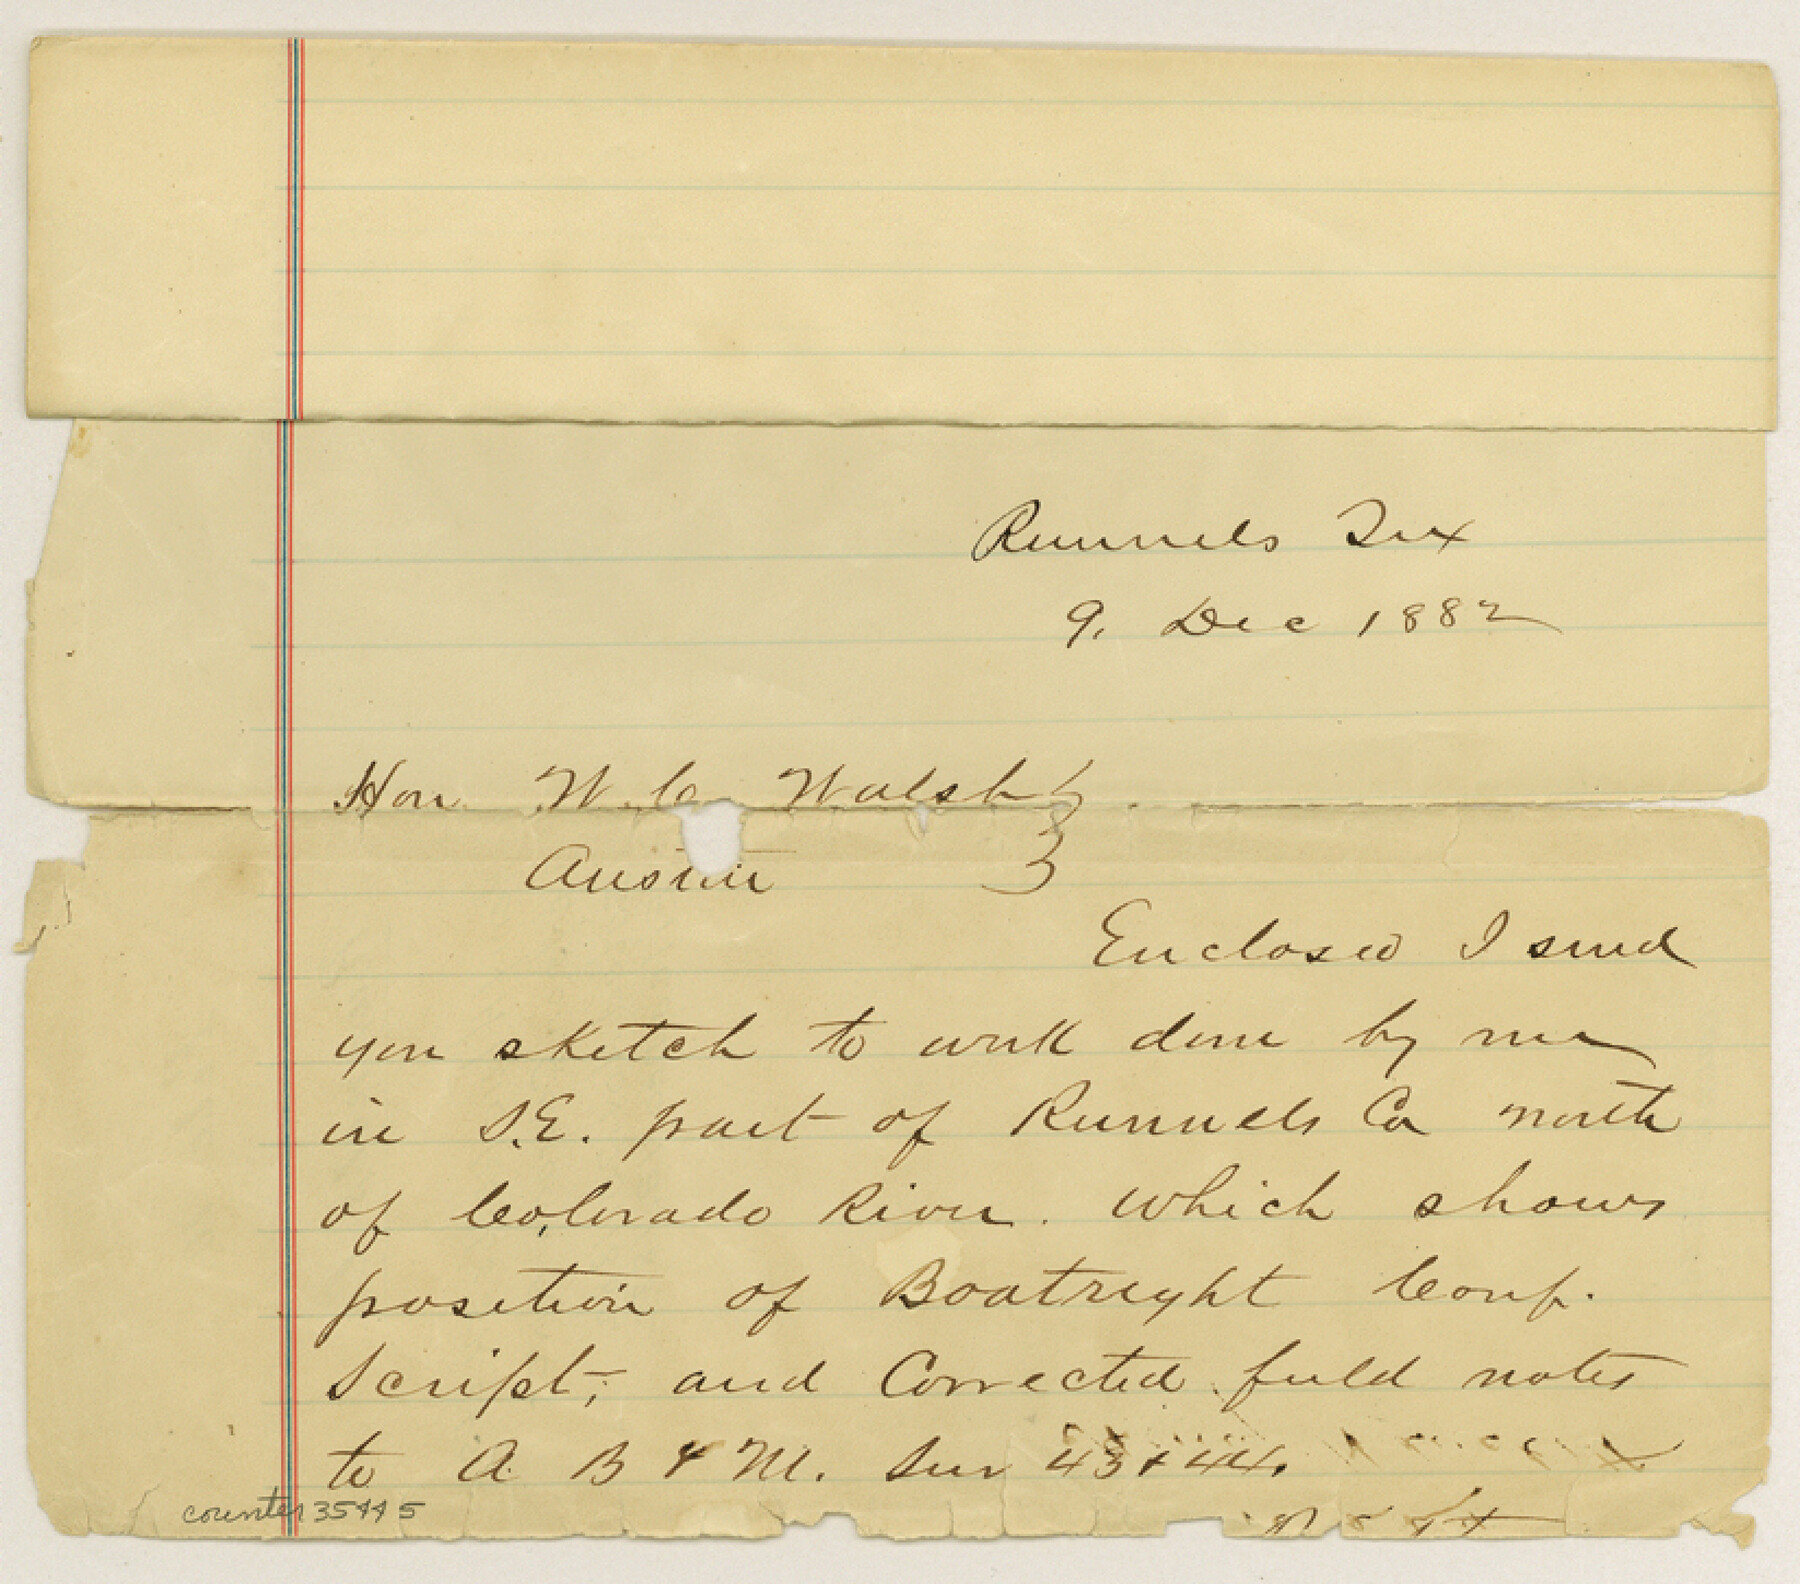 Runnels Tex
9. Dec 1882
Hon W. C. Walsh
Austin
Enclosed I send
you sketch to work done by me
in S.E. part of Runnels Co north
of Colorado River. which shows
position of Boatright Conf.
Script, and Corrected field notes
to A B & M. Sur 43 & 44.
counter 35445